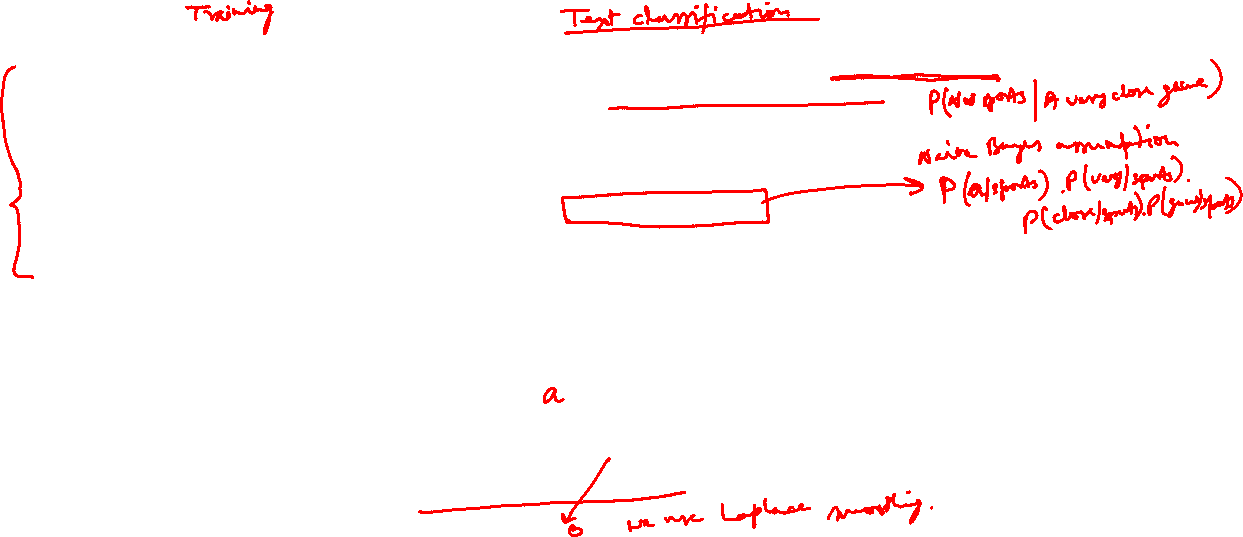 Training
Text classification
P(Not sports | A very close game)
Naive Bayes assumption
P(a/sports) . P(very/sports).
P(close/sports).P(game/sports)
a
0 we use Laplace smoothing.